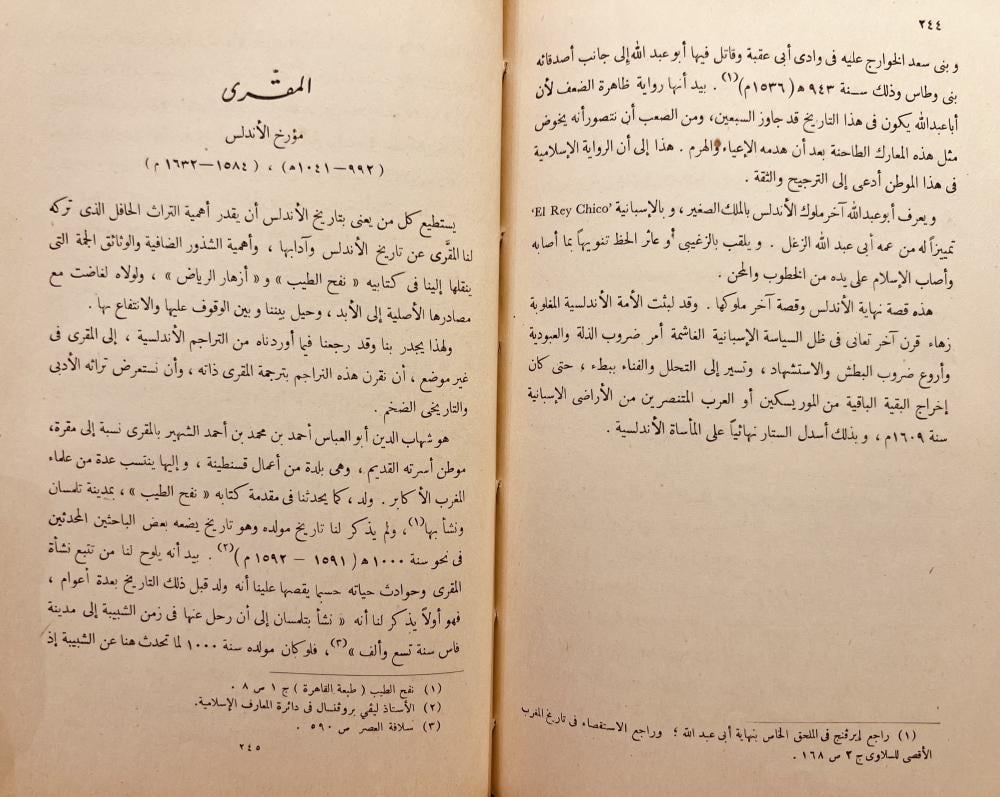 ٢٤٤
وبنى سعد الخوارج عليه فى وادى أبى عقبة وقاتل فيها أبو عبد الله إلى جانب أصدقائه
بنى وطاس وذلك سنة ٩٤٣ هـ (١٥٣٦م)(١) . بيد أنها رواية ظاهرة الضعف لأن
أباعبدالله يكون فى هذا التاريخ قد جاوز السبعين، ومن الصعب أن نتصور أنه يخوض
مثل هذه المعارك الطاحنة بعد أن هدمه الإعياء والهرم . هذا إلى أن الرواية الإسلامية
فى هذا الموطن أدعى إلى الترجيح والثقة .
ويعرف أبو عبدالله آخر ملوك الأندلس بالملك الصغير ، وبالإسبانية ‘El Rey Chico’
تمييزاً له من عمه أبى عبد الله الزغل . ويلقب بالزغيبى أو عاثر الحظ تنويهاً بما أصابه
وأصاب الإسلام على يده من الخطوب والمحن .
هذه قصة نهاية الأندلس وقصة آخر ملوكها . وقد لبثت الأمة الأندلسية المغلوبة
زهاء قرن آخر تعانى فى ظل السياسة الإسبانية الغاشمة أمر ضروب الذلة والعبودية
وأروع ضروب البطش والاستشهاد ، وتسير إلى التحلل والفناء ببطء ، حتى كان
إخراج البقية الباقية من الموريسكين أو العرب المتنصرين من الأراضى الإسبانية
سنة ١٦٠٩م ، وبذلك أسدل الستار نهائياً على المأساة الأندلسية .
(١) راجع إيرڤنج فى الملحق الخاص بنهاية أبى عبد الله ؛ وراجع الاستقصاء فى تاريخ المغرب
الأقصى للسلاوى ج ٢ ص ١٦٨ .
المقّرى
مؤرخ الأندلس
(٩٩٢–١٠٤١هـ) ، (١٥٨٤–١٦٣٢ م)
يستطيع كل من يعنى بتاريخ الأندلس أن يقدر أهمية التراث الحافل الذى تركه
لنا المقَّرى عن تاريخ الأندلس وآدابها ، وأهمية الشذور الضافية والوثائق الجمة التى
ينقلها إلينا فى كتابيه « نفح الطيب » و « أزهار الرياض » ، ولولاه لغاضت مع
مصادرها الأصلية إلى الأبد ، وحيل بيننا وبين الوقوف عليها والانتفاع بها .
ولهذا يجدر بنا وقد رجعنا فيما أوردناه من التراجم الأندلسية ، إلى المقرى فى
غير موضع ، أن نقرن هذه التراجم بترجمة المقرى ذاته ، وأن نستعرض تراثه الأدبى
والتاريخى الضخم .
هو شهاب الدين أبو العباس أحمد بن محمد بن أحمد الشهير بالمقرى نسبة إلى مقرة،
موطن أسرته القديم ، وهى بلدة من أعمال قسنطينة ، وإليها ينتسب عدة من علماء
المغرب الأكابر . ولد ، كما يحدثنا فى مقدمة كتابه « نفح الطيب » ، بمدينة تلمسان
ونشأ بها(١)، ولم يذكر لنا تاريخ مولده وهو تاريخ يضعه بعض الباحثين المحدثين
فى نحو سنة ١٠٠٠ هـ (١٥٩١ – ١٥٩٢ م)(٢) . بيد أنه يلوح لنا من تتبع نشأة
المقرى وحوادث حياته حسبما يقصها علينا أنه ولد قبل ذلك التاريخ بعدة أعوام ،
فهو أولاً يذكر لنا أنه « نشأ بتلمسان إلى أن رحل عنها فى زمن الشبيبة إلى مدينة
فاس سنة تسع وألف »(٣)، فلو كان مولده سنة ١٠٠٠ لما تحدث هنا عن الشبيبة إذ
(١) نفح الطيب ( طبعة القاهرة ) ج ١ ص ٨ .
(٢) الأستاذ ليڤى بروڤنسال فى دائرة المعارف الإسلامية.
(٣) سلافة العصر ص ٥٩٠ .
٢٤٥